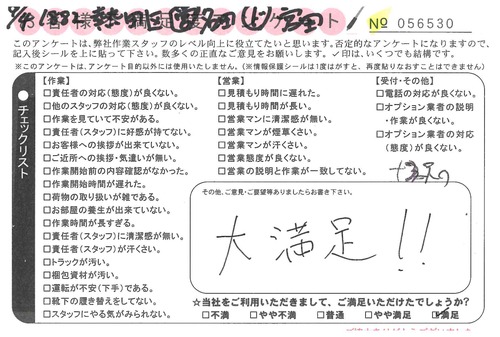 様 満足度アンケート
№ 056530
このアンケートは、弊社作業スタッフのレベル向上に役立てたいと思います。否定的なアンケートになりますので、
記入後シールを上に貼って下さい。数多くの正直なご意見をお願いします。✓印は、いくつでも結構です。
※このアンケートは、アンケート目的以外には使用いたしません。(※情報保護シールは1度はがすと、再度貼りなおすことはできません)
●チェックリスト
【作業】
□責任者の対応(態度)が良くない。
□他のスタッフの対応(態度)が良くない。
□作業を見ていて不安がある。
□責任者(スタッフ)に好感が持てない。
□お客様への挨拶が出来ていない。
□ご近所への挨拶・気遣いが無い。
□作業開始前の内容確認がなかった。
□作業開始時間が遅れた。
□荷物の取り扱いが雑である。
□お部屋の養生が出来ていない。
□作業時間が長すぎる。
□責任者(スタッフ)に清潔感が無い。
□責任者(スタッフ)が汗くさい。
□トラックが汚い。
□梱包資材が汚い。
□運転が不安(下手)である。
□靴下の履き替えをしてない。
□スタッフにやる気がみられない。
【営業】
□見積もり時間に遅れた。
□見積もり時間が長い。
□営業マンに清潔感が無い。
□営業マンが煙草くさい。
□営業マンが汗くさい。
□営業態度が良くない。
□営業の説明と作業が一致してない。
【受付・その他】
□電話の対応が良くない。
□オプション業者の説明
・作業が良くない。
□オプション業者の対応
(態度)が良くない。
その他、ご意見・ご要望等ありましたらお書き下さい。
大満足!!
☆当社をご利用いただきまして、ご満足いただけたでしょうか?
□不満 □やや不満 □普通 □やや満足 □満足